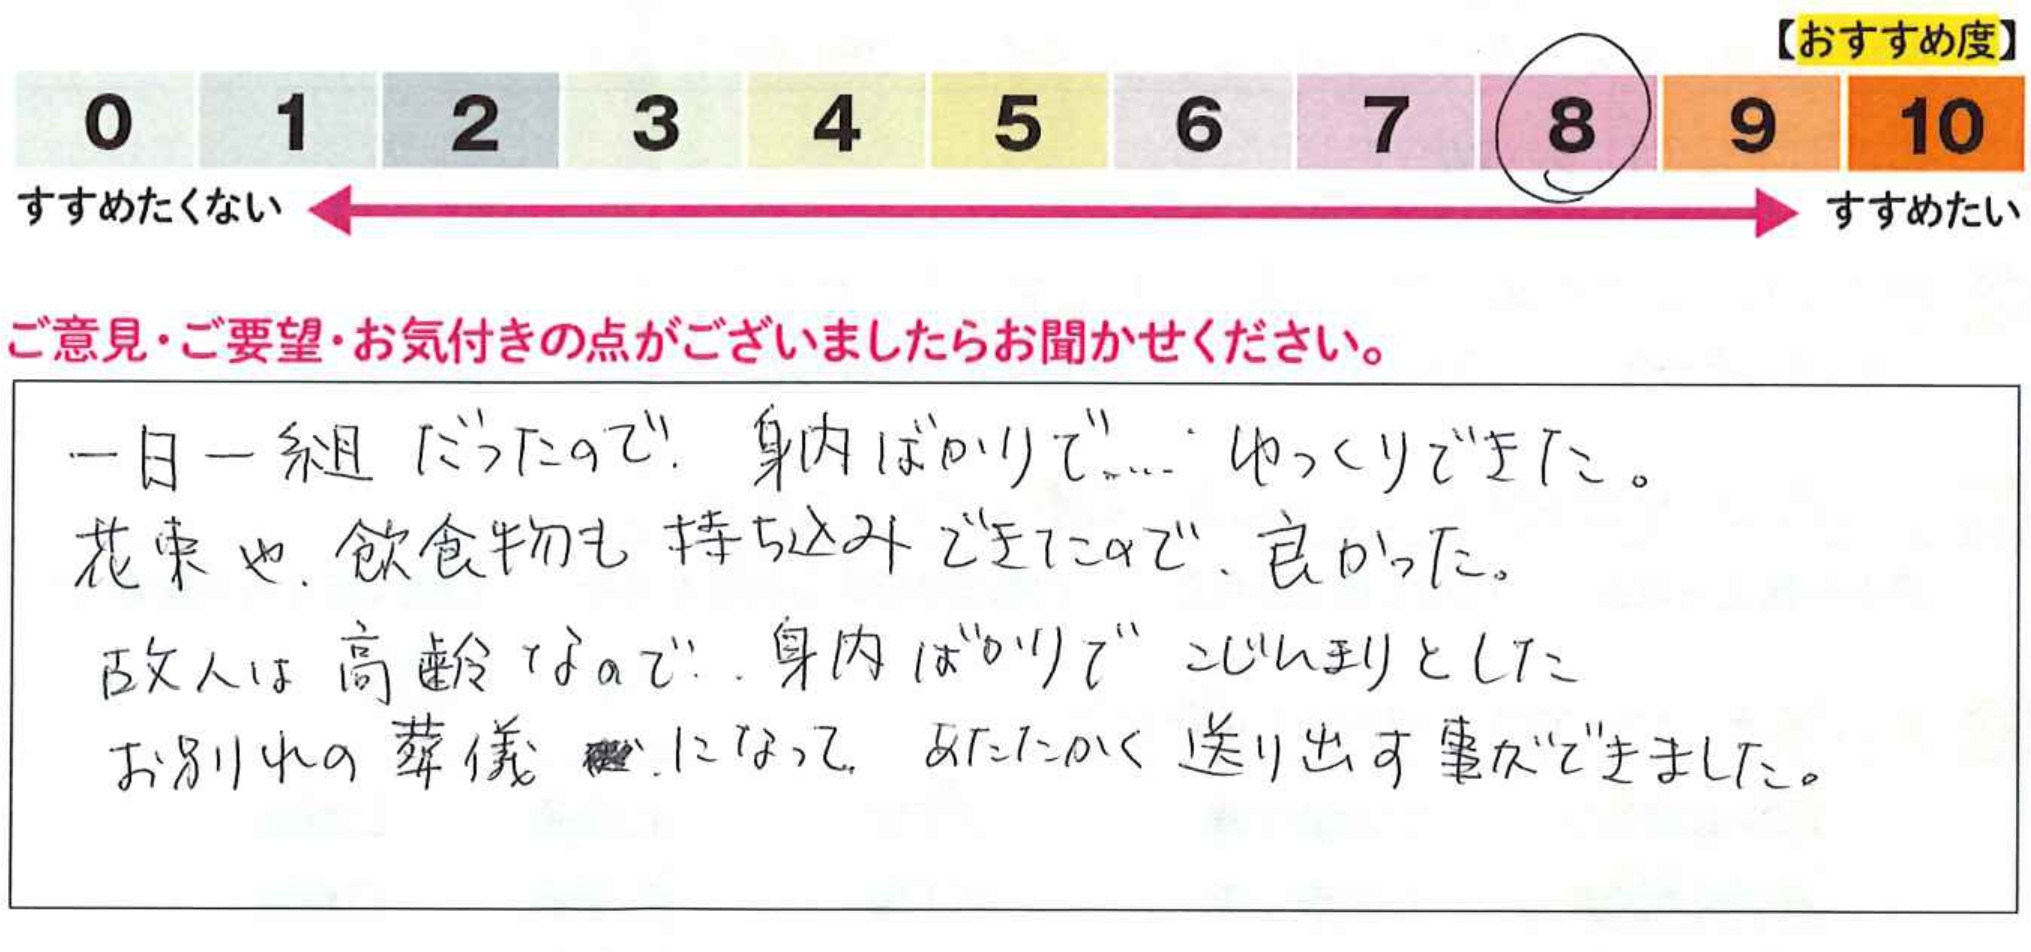 【おすすめ度】
0 1 2 3 4 5 6 7 8 9 10
すすめたくない すすめたい
ご意見・ご要望・お気付きの点がございましたらお聞かせください。
一日一組だったので、身内ばかりで…‥ゆっくりできた。
花束や、飲食物も持ち込みできたので、良かった。
故人は高齢なので、身内ばかりでこじんまりとした
お別れの葬儀になって、あたたかく送り出す事ができました。